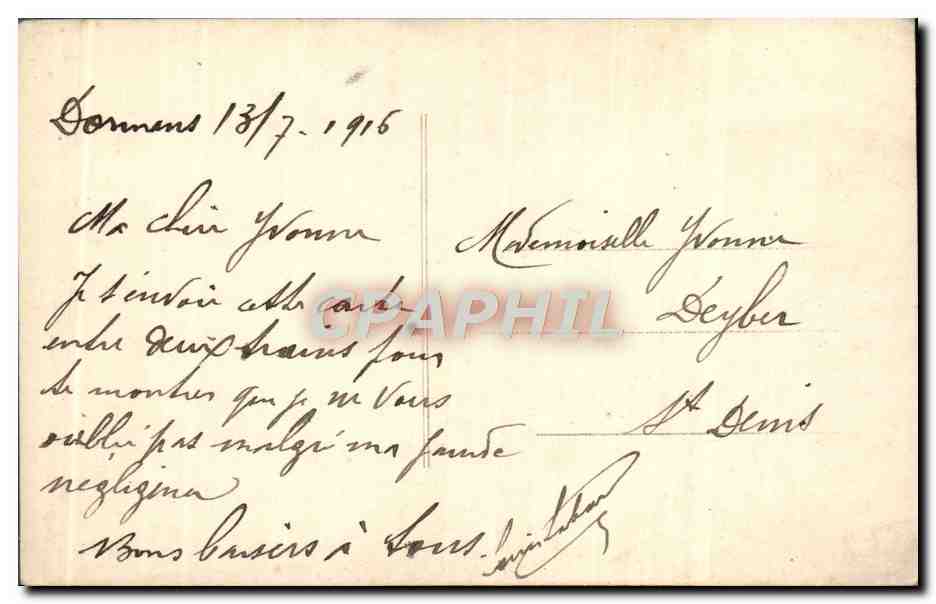 Dormans 13/7. 1916
Ma chère Yvonne
Je t'envoie cette carte
entre deux trains pour
te montrer que je ne vous
oublie pas malgré ma grande
négligence
Bons baisers à tous.
Mademoiselle Yvonne
Deyber
St Denis
CPAPHIL